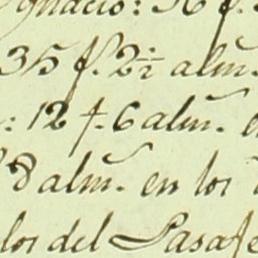 Ignacio: 16 f.
35 f. 2½ alm.
: 12 f. 6 alm. e
8 alm. en los
los del Pasaje